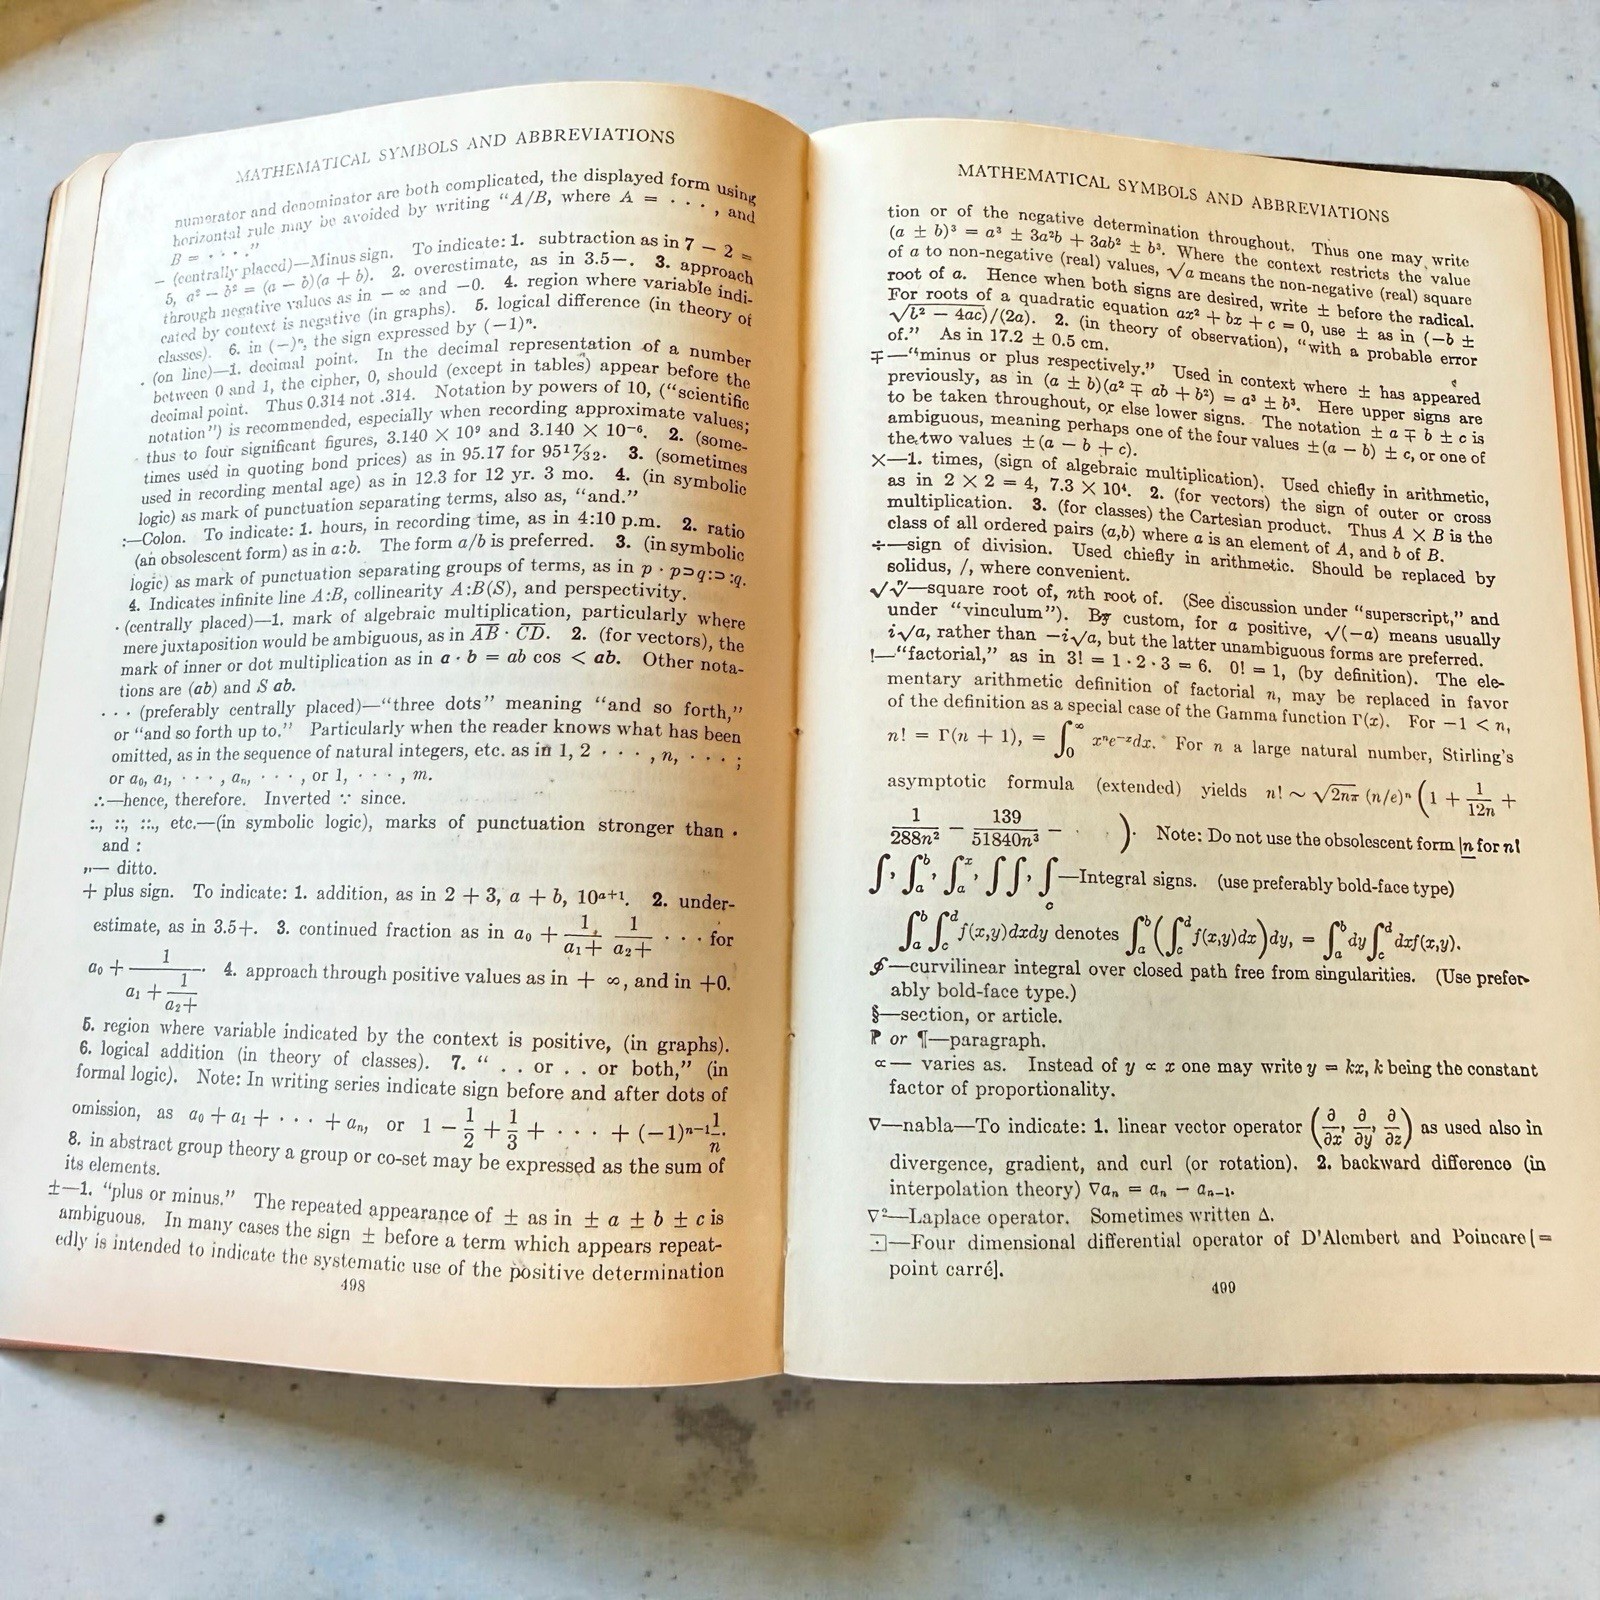 MATHEMATICAL SYMBOLS AND ABBREVIATIONS
numerator and denominator are both complicated, the displayed form using
horizontal rule may be avoided by writing “A/B, where A = · · · , and
B = · · ·.”
− (centrally placed)—Minus sign. To indicate: 1. subtraction as in 7 − 2 =
5, a² − b² = (a − b)(a + b). 2. overestimate, as in 3.5−. 3. approach
through negative values as in − ∞ and −0. 4. region where variable indi-
cated by context is negative (in graphs). 5. logical difference (in theory of
classes). 6. in (−)ⁿ, the sign expressed by (−1)ⁿ.
. (on line)—1. decimal point. In the decimal representation of a number
between 0 and 1, the cipher, 0, should (except in tables) appear before the
decimal point. Thus 0.314 not .314. Notation by powers of 10, (“scientific
notation”) is recommended, especially when recording approximate values;
thus to four significant figures, 3.140 × 10⁹ and 3.140 × 10⁻⁶. 2. (some-
times used in quoting bond prices) as in 95.17 for 95¹⁷⁄₃₂. 3. (sometimes
used in recording mental age) as in 12.3 for 12 yr. 3 mo. 4. (in symbolic
logic) as mark of punctuation separating terms, also as, “and.”
:—Colon. To indicate: 1. hours, in recording time, as in 4:10 p.m. 2. ratio
(an obsolescent form) as in a:b. The form a/b is preferred. 3. (in symbolic
logic) as mark of punctuation separating groups of terms, as in p · p⊃q:⊃:q.
4. Indicates infinite line A:B, collinearity A:B(S), and perspectivity.
· (centrally placed)—1. mark of algebraic multiplication, particularly where
mere juxtaposition would be ambiguous, as in A̅B̅ · C̅D̅. 2. (for vectors), the
mark of inner or dot multiplication as in a · b = ab cos < ab. Other nota-
tions are (ab) and S ab.
· · · (preferably centrally placed)—“three dots” meaning “and so forth,”
or “and so forth up to.” Particularly when the reader knows what has been
omitted, as in the sequence of natural integers, etc. as in 1, 2 · · · , n, · · · ;
or a₀, a₁, · · · , aₙ, · · · , or 1, · · · , m.
∴—hence, therefore. Inverted ∵ since.
:., ::, ::., etc.—(in symbolic logic), marks of punctuation stronger than .
and :
„— ditto.
+ plus sign. To indicate: 1. addition, as in 2 + 3, a + b, 10ᵃ⁺¹. 2. under-
estimate, as in 3.5+. 3. continued fraction as in a₀ + 1/(a₁+) 1/(a₂+) · · · for
a₀ + 1/(a₁ + 1/(a₂+)). 4. approach through positive values as in + ∞, and in +0.
5. region where variable indicated by the context is positive, (in graphs).
6. logical addition (in theory of classes). 7. “ . . or . . or both,” (in
formal logic). Note: In writing series indicate sign before and after dots of
omission, as a₀ + a₁ + · · · + aₙ, or 1 − 1/2 + 1/3 + · · · + (−1)ⁿ⁻¹ 1/n.
8. in abstract group theory a group or co-set may be expressed as the sum of
its elements.
±—1. “plus or minus.” The repeated appearance of ± as in ± a ± b ± c is
ambiguous. In many cases the sign ± before a term which appears repeat-
edly is intended to indicate the systematic use of the positive determination
498
MATHEMATICAL SYMBOLS AND ABBREVIATIONS
tion or of the negative determination throughout. Thus one may write
(a ± b)³ = a³ ± 3a²b + 3ab² ± b³. Where the context restricts the value
of a to non-negative (real) values, √a means the non-negative (real) square
root of a. Hence when both signs are desired, write ± before the radical.
For roots of a quadratic equation ax² + bx + c = 0, use ± as in (−b ±
√(b² − 4ac)/(2a). 2. (in theory of observation), “with a probable error
of.” As in 17.2 ± 0.5 cm.
∓—“minus or plus respectively.” Used in context where ± has appeared
previously, as in (a ± b)(a² ∓ ab + b²) = a³ ± b³. Here upper signs are
to be taken throughout, or else lower signs. The notation ± a ∓ b ± c is
ambiguous, meaning perhaps one of the four values ±(a − b) ± c, or one of
the two values ±(a − b + c).
×—1. times, (sign of algebraic multiplication). Used chiefly in arithmetic,
as in 2 × 2 = 4, 7.3 × 10⁴. 2. (for vectors) the sign of outer or cross
multiplication. 3. (for classes) the Cartesian product. Thus A × B is the
class of all ordered pairs (a,b) where a is an element of A, and b of B.
÷—sign of division. Used chiefly in arithmetic. Should be replaced by
solidus, /, where convenient.
√ ⁿ√—square root of, nth root of. (See discussion under “superscript,” and
under “vinculum”). By custom, for a positive, √(−a) means usually
i√a, rather than −i√a, but the latter unambiguous forms are preferred.
!—“factorial,” as in 3! = 1 · 2 · 3 = 6. 0! = 1, (by definition). The ele-
mentary arithmetic definition of factorial n, may be replaced in favor
of the definition as a special case of the Gamma function Γ(x). For −1 < n,
n! = Γ(n + 1), = ∫₀^∞ xⁿe⁻ˣdx. For n a large natural number, Stirling’s
asymptotic formula (extended) yields n! ~ √2nπ (n/e)ⁿ (1 + 1/12n +
1/288n² − 139/51840n³ − · ). Note: Do not use the obsolescent form |n for n!
∫, ∫ₐᵇ, ∫ₐˣ, ∫∫, ∫c—Integral signs. (use preferably bold-face type)
∫ₐᵇ ∫_c^d f(x,y)dxdy denotes ∫ₐᵇ (∫_c^d f(x,y)dx)dy, = ∫ₐᵇ dy ∫_c^d dxf(x,y).
∮—curvilinear integral over closed path free from singularities. (Use prefer-
ably bold-face type.)
§—section, or article.
⁋ or ¶—paragraph.
∝— varies as. Instead of y ∝ x one may write y = kx, k being the constant
factor of proportionality.
∇—nabla—To indicate: 1. linear vector operator (∂/∂x, ∂/∂y, ∂/∂z) as used also in
divergence, gradient, and curl (or rotation). 2. backward difference (in
interpolation theory) ∇aₙ = aₙ − aₙ₋₁.
∇²—Laplace operator. Sometimes written Δ.
⊡—Four dimensional differential operator of D’Alembert and Poincare [=
point carré].
499